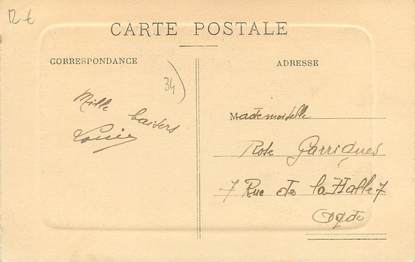 12 €
CARTE POSTALE
CORRESPONDANCE
ADRESSE
34
Mille baisers
Mademoiselle
Rose Garrigues
7 Rue de la Halle 7
Agde